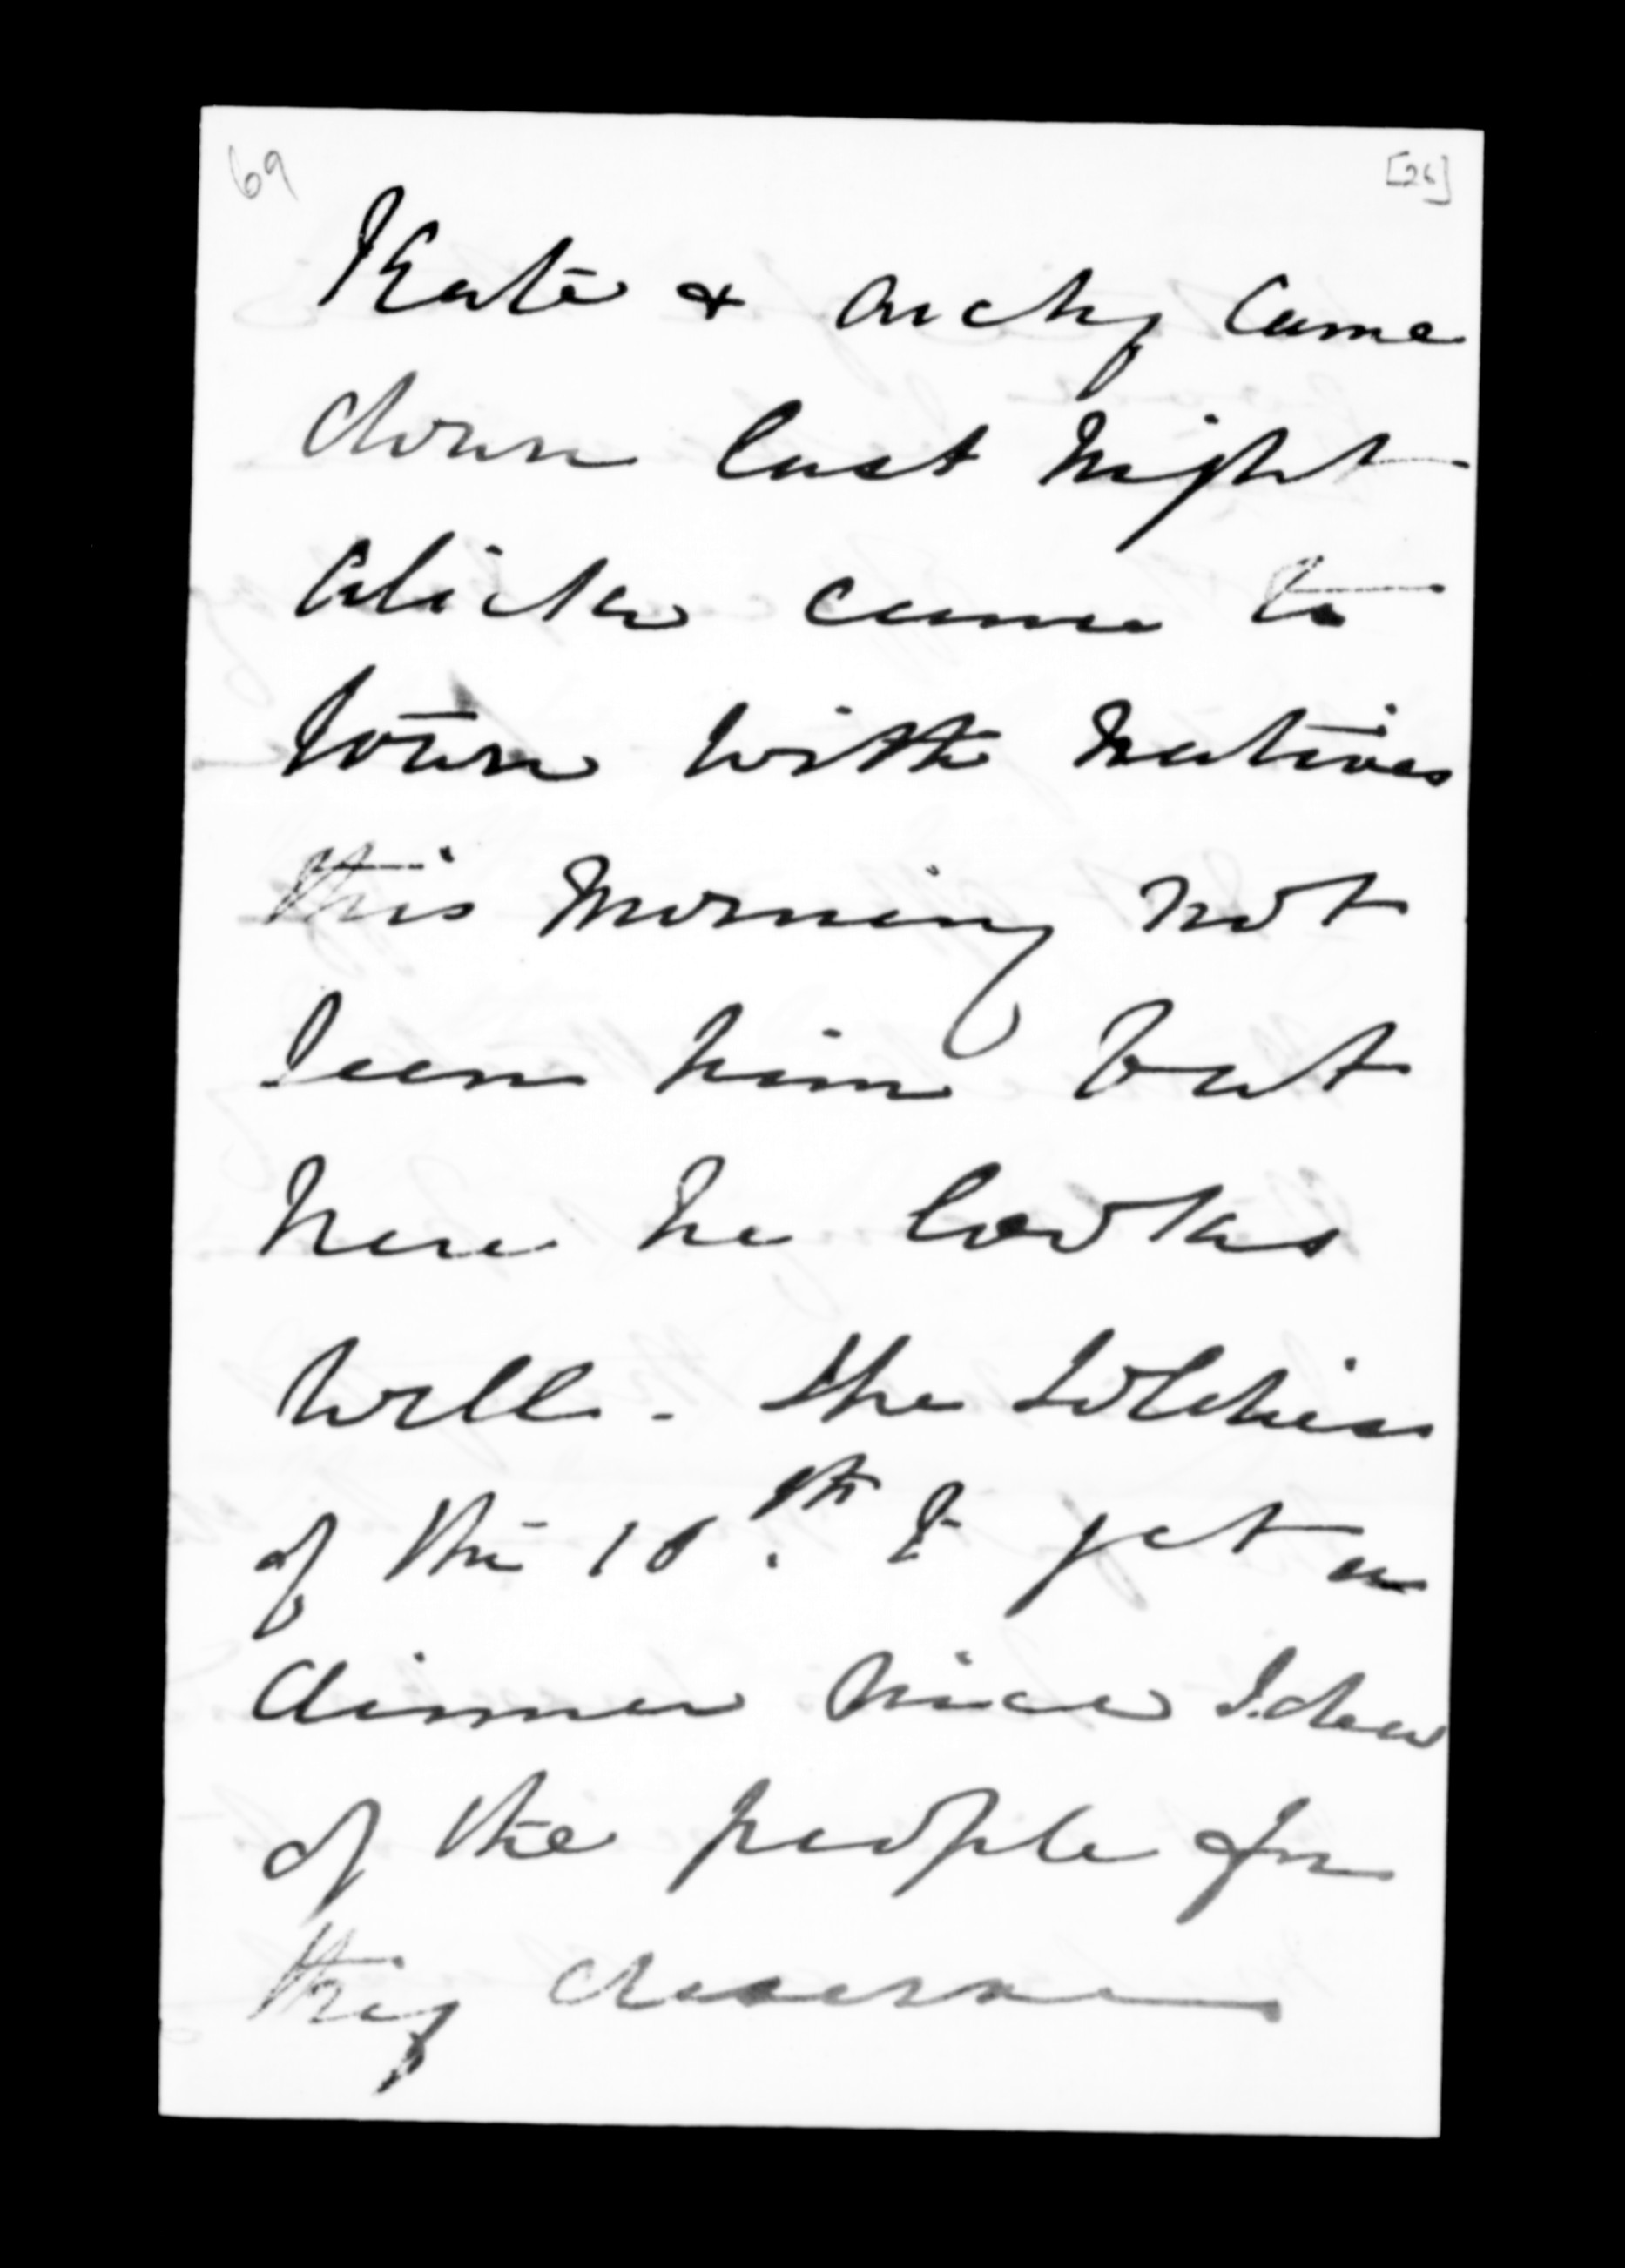 69 [26]
Kate & Archy came
down last night
Alick came to
town with natives
this morning not
seen him but
hear he looks
well. - The soldiers
of the 18.th I get a
dinner nice idea
of the people for
they deserve